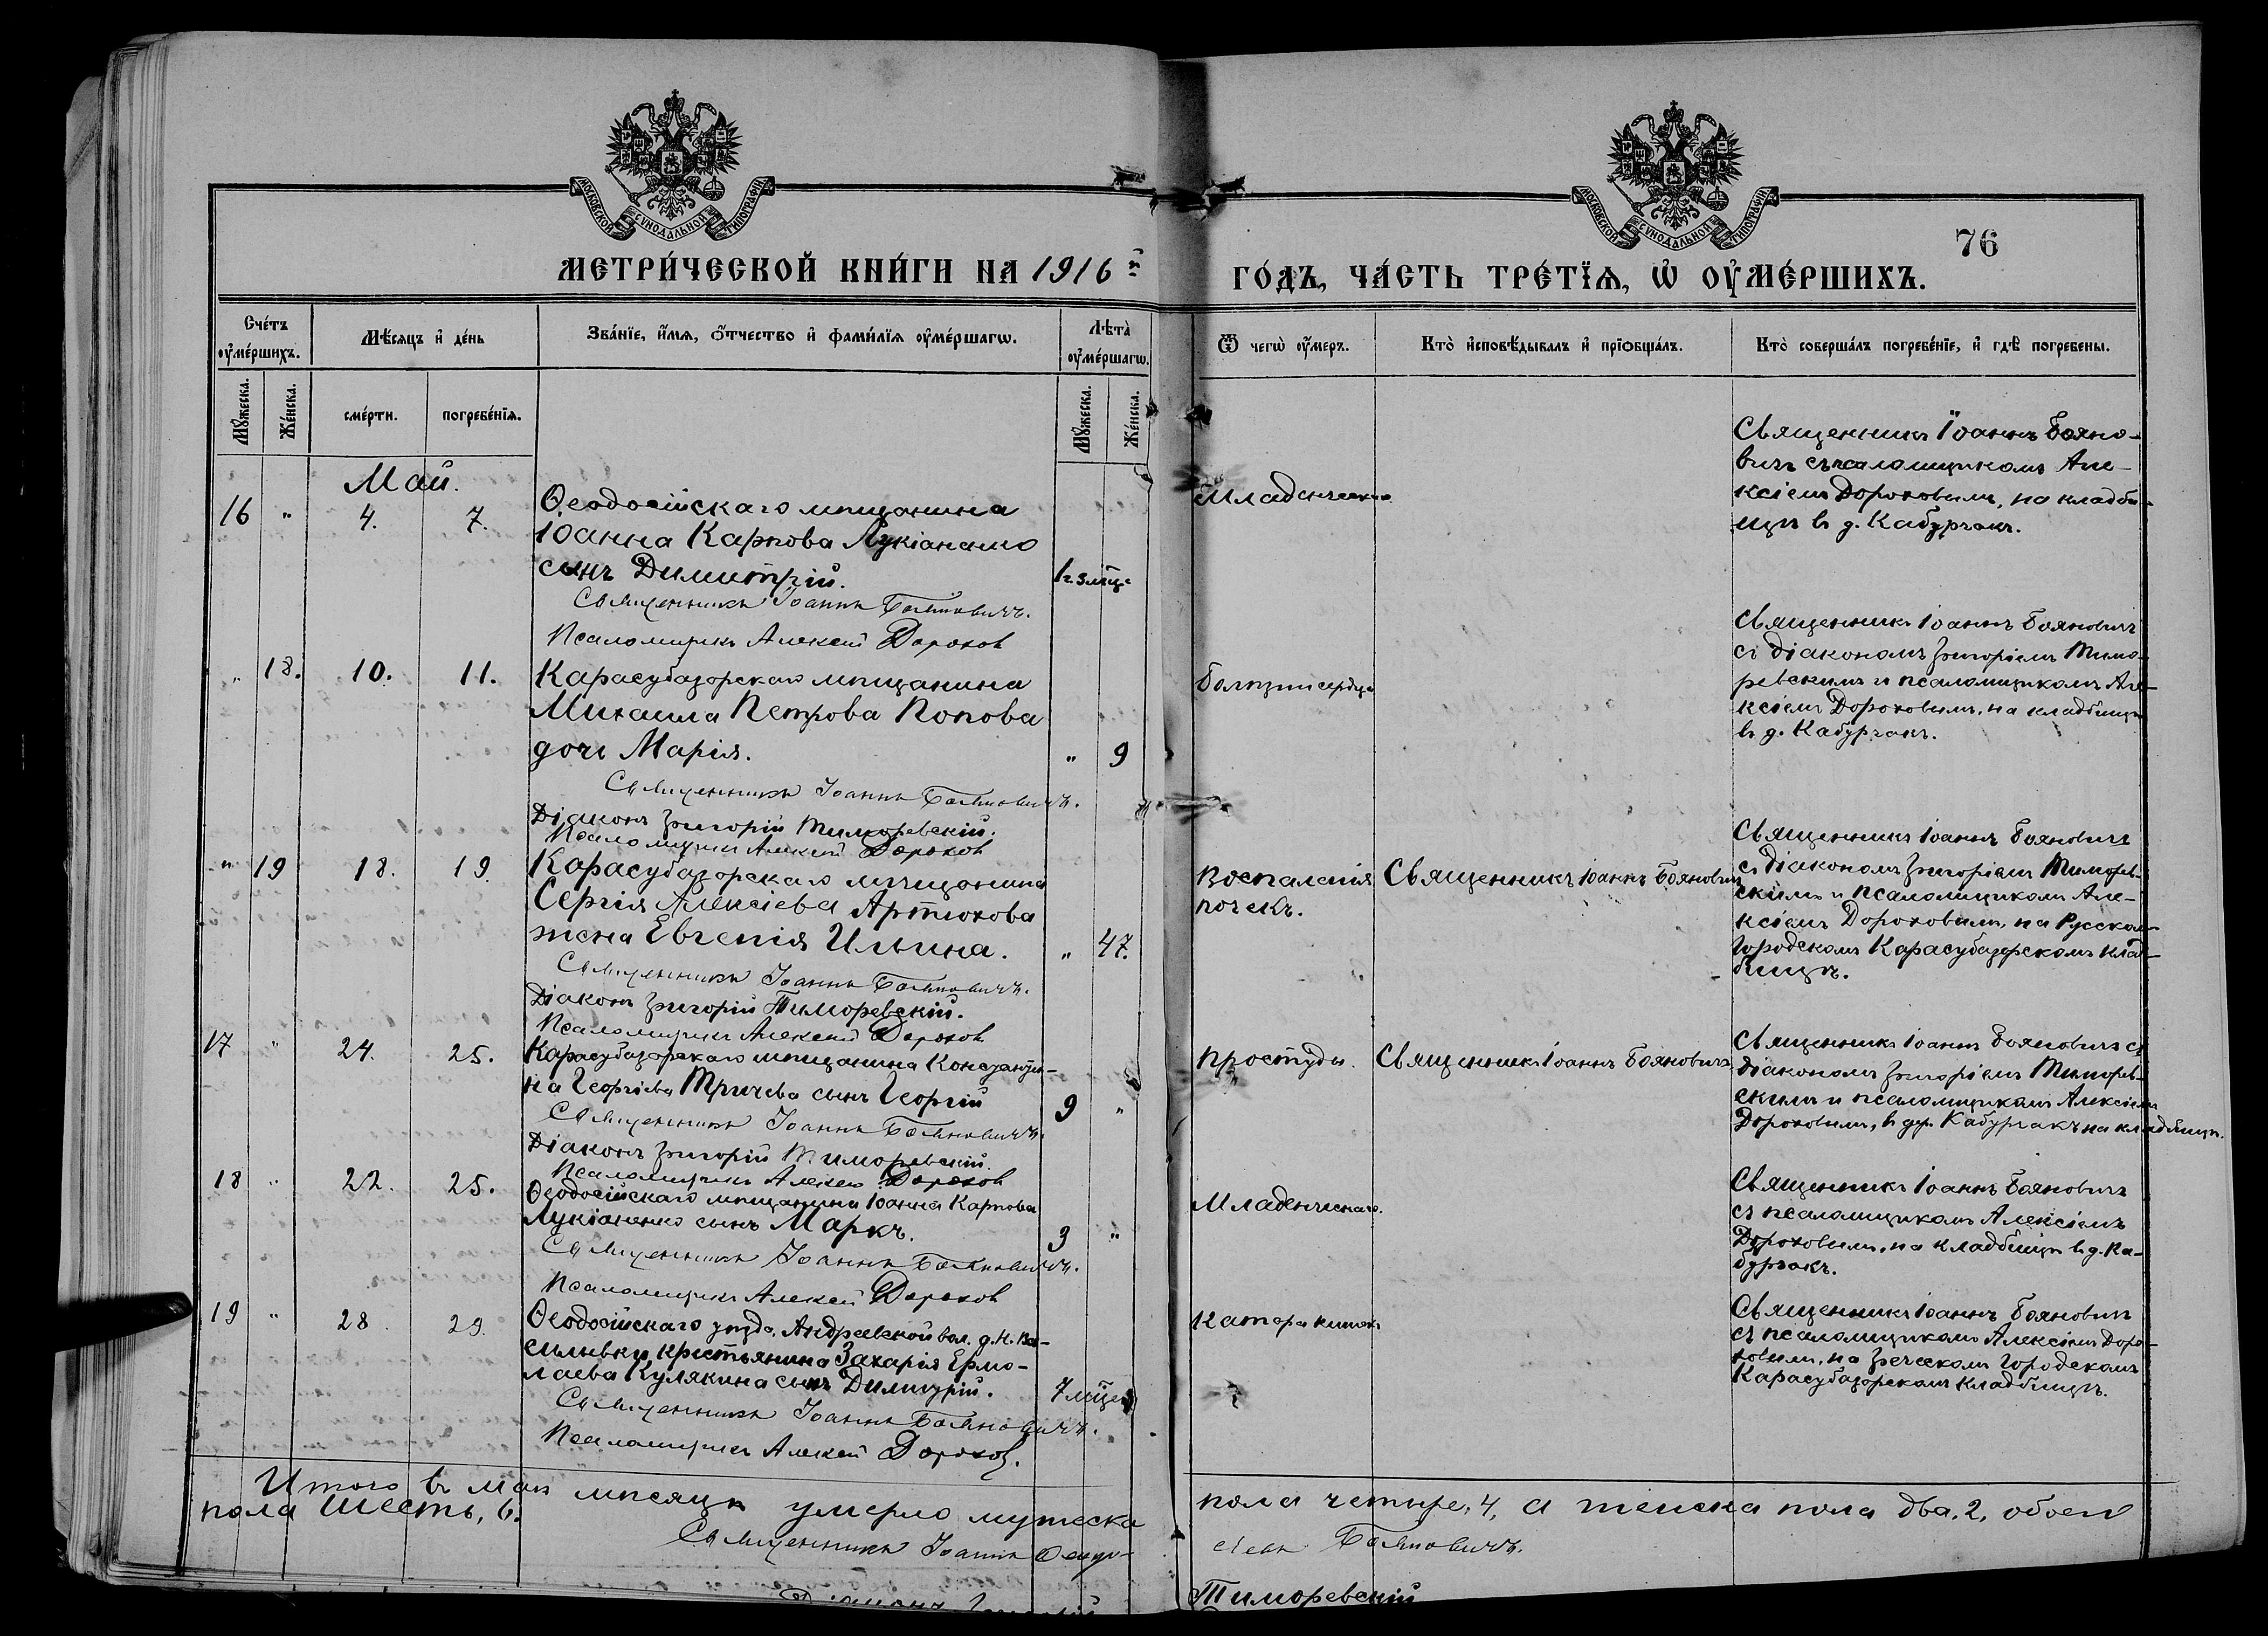 МОСКОВСКОЙ СѴНОДАЛЬНОЙ ТИПОГРАФІИ
МОСКОВСКОЙ СѴНОДАЛЬНОЙ ТИПОГРАФІИ
76
МЕТРИ́ЧЕСКОЙ КНИ́ГИ НА 1916 й
ГО́ДЪ, ЧА́СТЬ ТРЕ́ТЇѦ, Ѡ҆ ОУ҆МЕ́РШИХЪ.
Сче́тъ оу҆ме́ршихъ.
Мѣ́сяцъ и҆ де́нь
Зва́нїе, и҆́мя, ѻ҆́тчество и҆ фами́лїя оу҆ме́ршагѡ.
Лѣта̀ оу҆ме́ршагѡ.
Ѿ чегѡ̀ оу҆́меръ.
Кто̀ и҆сповѣ́дывалъ и҆ прїѻбща́лъ.
Кто̀ соверша́лъ погребе́нїе, и҆ гдѣ̀ погребены.
Мꙋ́жеска.
Же́нска.
сме́рти.
погребе́нїя.
Мꙋ́жеска.
Же́нска.
Май.
16 " 4. 7.
Ѳеодосійскаго мѣщанина
Іоанна Карпова Лукіаненко
сынъ Димитрій.
1 г. 3 мѣц.
Священникъ Іоаннъ Бояновичъ.
Псаломщикъ Алексей Дорохов
Младенческ
Священникъ Іоаннъ Бояно-
вичъ съ псаломщикомъ Але-
ксіемъ Дороховымъ, на кладби-
щѣ въ д. Кабурчакъ.
" 18. 10. 11.
Карасубазорскаго мѣщанина
Михаила Петрова Попова
дочь Марія.
" 9
Священникъ Іоаннъ Бояновичъ.
Діаконъ Григорій Тиморевскій.
Псаломщикъ Алексей Дорохов
Болѣзни сердца
Священникъ Іоаннъ Бояновичъ
съ діакономъ Григоріемъ Тимо-
ревскимъ и псаломщикомъ Але-
ксіемъ Дороховымъ, на кладбищѣ
въ д. Кабурчакъ.
" 19 18. 19.
Карасубазорскаго мѣщанина
Сергія Алексіева Артюхова
жена Евгенія Ильина.
" 47.
Священникъ Іоаннъ Бояновичъ.
Діаконъ Григорій Тиморевскій.
Псаломщикъ Алексей Дорохов
Воспаленія
почекъ.
Священникъ Іоаннъ Бояновичъ
Священникъ Іоаннъ Бояновичъ
съ діакономъ Григоріемъ Тиморев-
скимъ и псаломщикомъ Але-
ксіемъ Дороховымъ, на Русском
Городскомъ Карасубазорскомъ клад-
бищѣ.
17 " 24. 25.
Карасубазорскаго мѣщанина Константи-
на Георгіева Тричева сынъ Георгій
9 "
Священникъ Іоаннъ Бояновичъ.
Діаконъ Григорій Тиморевскій.
Псаломщикъ Алексей Дорохов
Простуды.
Священникъ Іоаннъ Бояновичъ
Священникъ Іоаннъ Бояновичъ съ
діакономъ Григоріемъ Тиморев-
скимъ и псаломщикомъ Алексіем
Дороховымъ, въ дер. Кабурчакъ на кладбищѣ.
18 " 22. 25.
Ѳеодосійскаго мѣщанина Іоанна Карпова
Лукіаненко сынъ Маркъ.
3 "
Священникъ Іоаннъ Бояновичъ.
Псаломщикъ Алексей Дорохов
Младенческаго.
Священникъ Іоаннъ Бояновичъ
съ псаломщикомъ Алексіемъ
Дороховымъ, на кладбищѣ въ д. Ка-
бурчакъ.
19 " 28. 29.
Ѳеодосійскаго уѣзда, Андреевской вол. д. Н. Ва-
сильевки, крестьянина Захарія Ермо-
лаева Кулякина сынъ Димитрій.
7 мѣцев
Священникъ Іоаннъ Бояновичъ.
Псаломщикъ Алексей Дорохов.
Катора кишек
Священникъ Іоаннъ Бояновичъ
съ псаломщикомъ Алексіемъ Доро-
ховымъ, на Греческомъ Городскомъ
Карасубазорскомъ кладбищѣ.
Итого въ маѣ мѣсяцѣ умерло мужеска пола четыре, 4, а женска пола два, 2, обоего
пола шесть, 6.
Священникъ Іоаннъ Ѳеодо- сіевъ Бояновичъ.
Діаконъ Григорій Тиморевскій